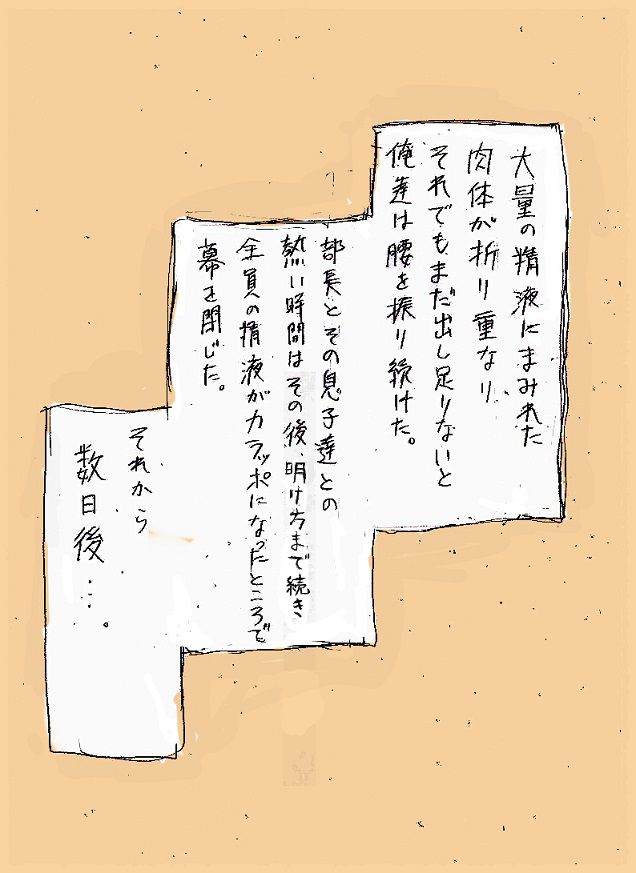 大量の精液にまみれた
肉体が折り重なり
それでもまだ出し足りないと
俺達は腰を振り続けた。
部長とその息子達との
熱い時間はその後、明け方まで続き
全員の精液がカラッポになったところで
幕を閉じた。
それから
数日後…。